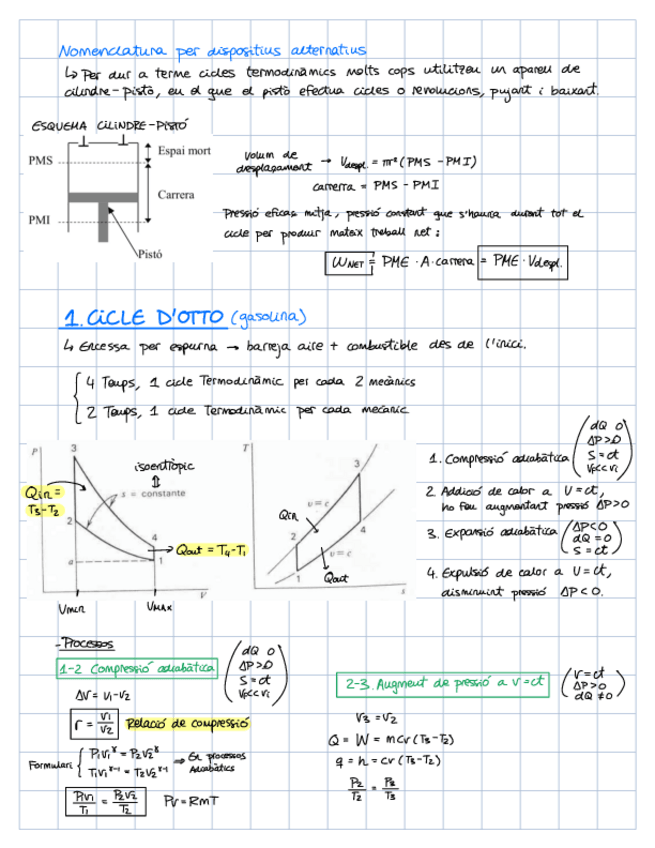 Nomenclatura per dispositius alternatius
↳ Per dur a terme cicles termodinàmics molts cops utilitzeu un apareu de
cilindre-pistó, eu el que el pistó efectua cicles o revolucions, pujant i baixant.
ESQUEMA CILINDRE-PISTÓ
PMS
Espai mort
Carrera
PMI
Pistó
Volum de
desplaçament → Vdespl. = πr²(PMS - PMI)
carrerra = PMS - PMI
Pressió eficaç mitja, pressió constant que s'hauria durant tot el
cicle per produir mateix treball net :
WNET = PME · A · carrera = PME · Vdespl.
1. CICLE D'OTTO (gasolina)
↳ Encessa per espurna → barreja aire + combustible des de l'inici.
4 Temps, 1 cicle Termodinàmic per cada 2 mecànics
2 Temps, 1 cicle Termodinàmic per cada mecànic
P
3
isoentròpic
s = constante
Qin =
T3-T2
2
4
1
a
Qout = T4-T1
VMIN
VMAX
V
T
3
v = c
Qin
2
4
v = c
1
Qout
s
1. Compressió adiabàtica
dQ 0
ΔP>0
S = ct
VF<<Vi
2 Addició de calor a V = ct,
ho feu augmentant pressió ΔP>0
3. Expansió adiabàtica
ΔP<0
dQ = 0
S = ct
4. Expulsió de calor a V = ct,
disminuint pressió ΔP < 0.
- Processos
1-2 Compressió adiabàtica
dQ 0
ΔP>0
S = ct
VF<<Vi
ΔV = V1 - V2
r = V1/V2 Relació de compressió
Formulari
P1V1^γ = P2V2^γ
T1V1^γ-1 = T2V2^γ-1
⇒ En processos
Adiabàtics
P1V1/T1 = P2V2/T2
PV = RmT
2-3. Augment de pressió a V = ct
V = ct
ΔP>0
dQ ≠ 0
V3 = V2
Q = W = mcv (T3-T2)
q = h = cv (T3-T2)
P2/T2 = P3/T3